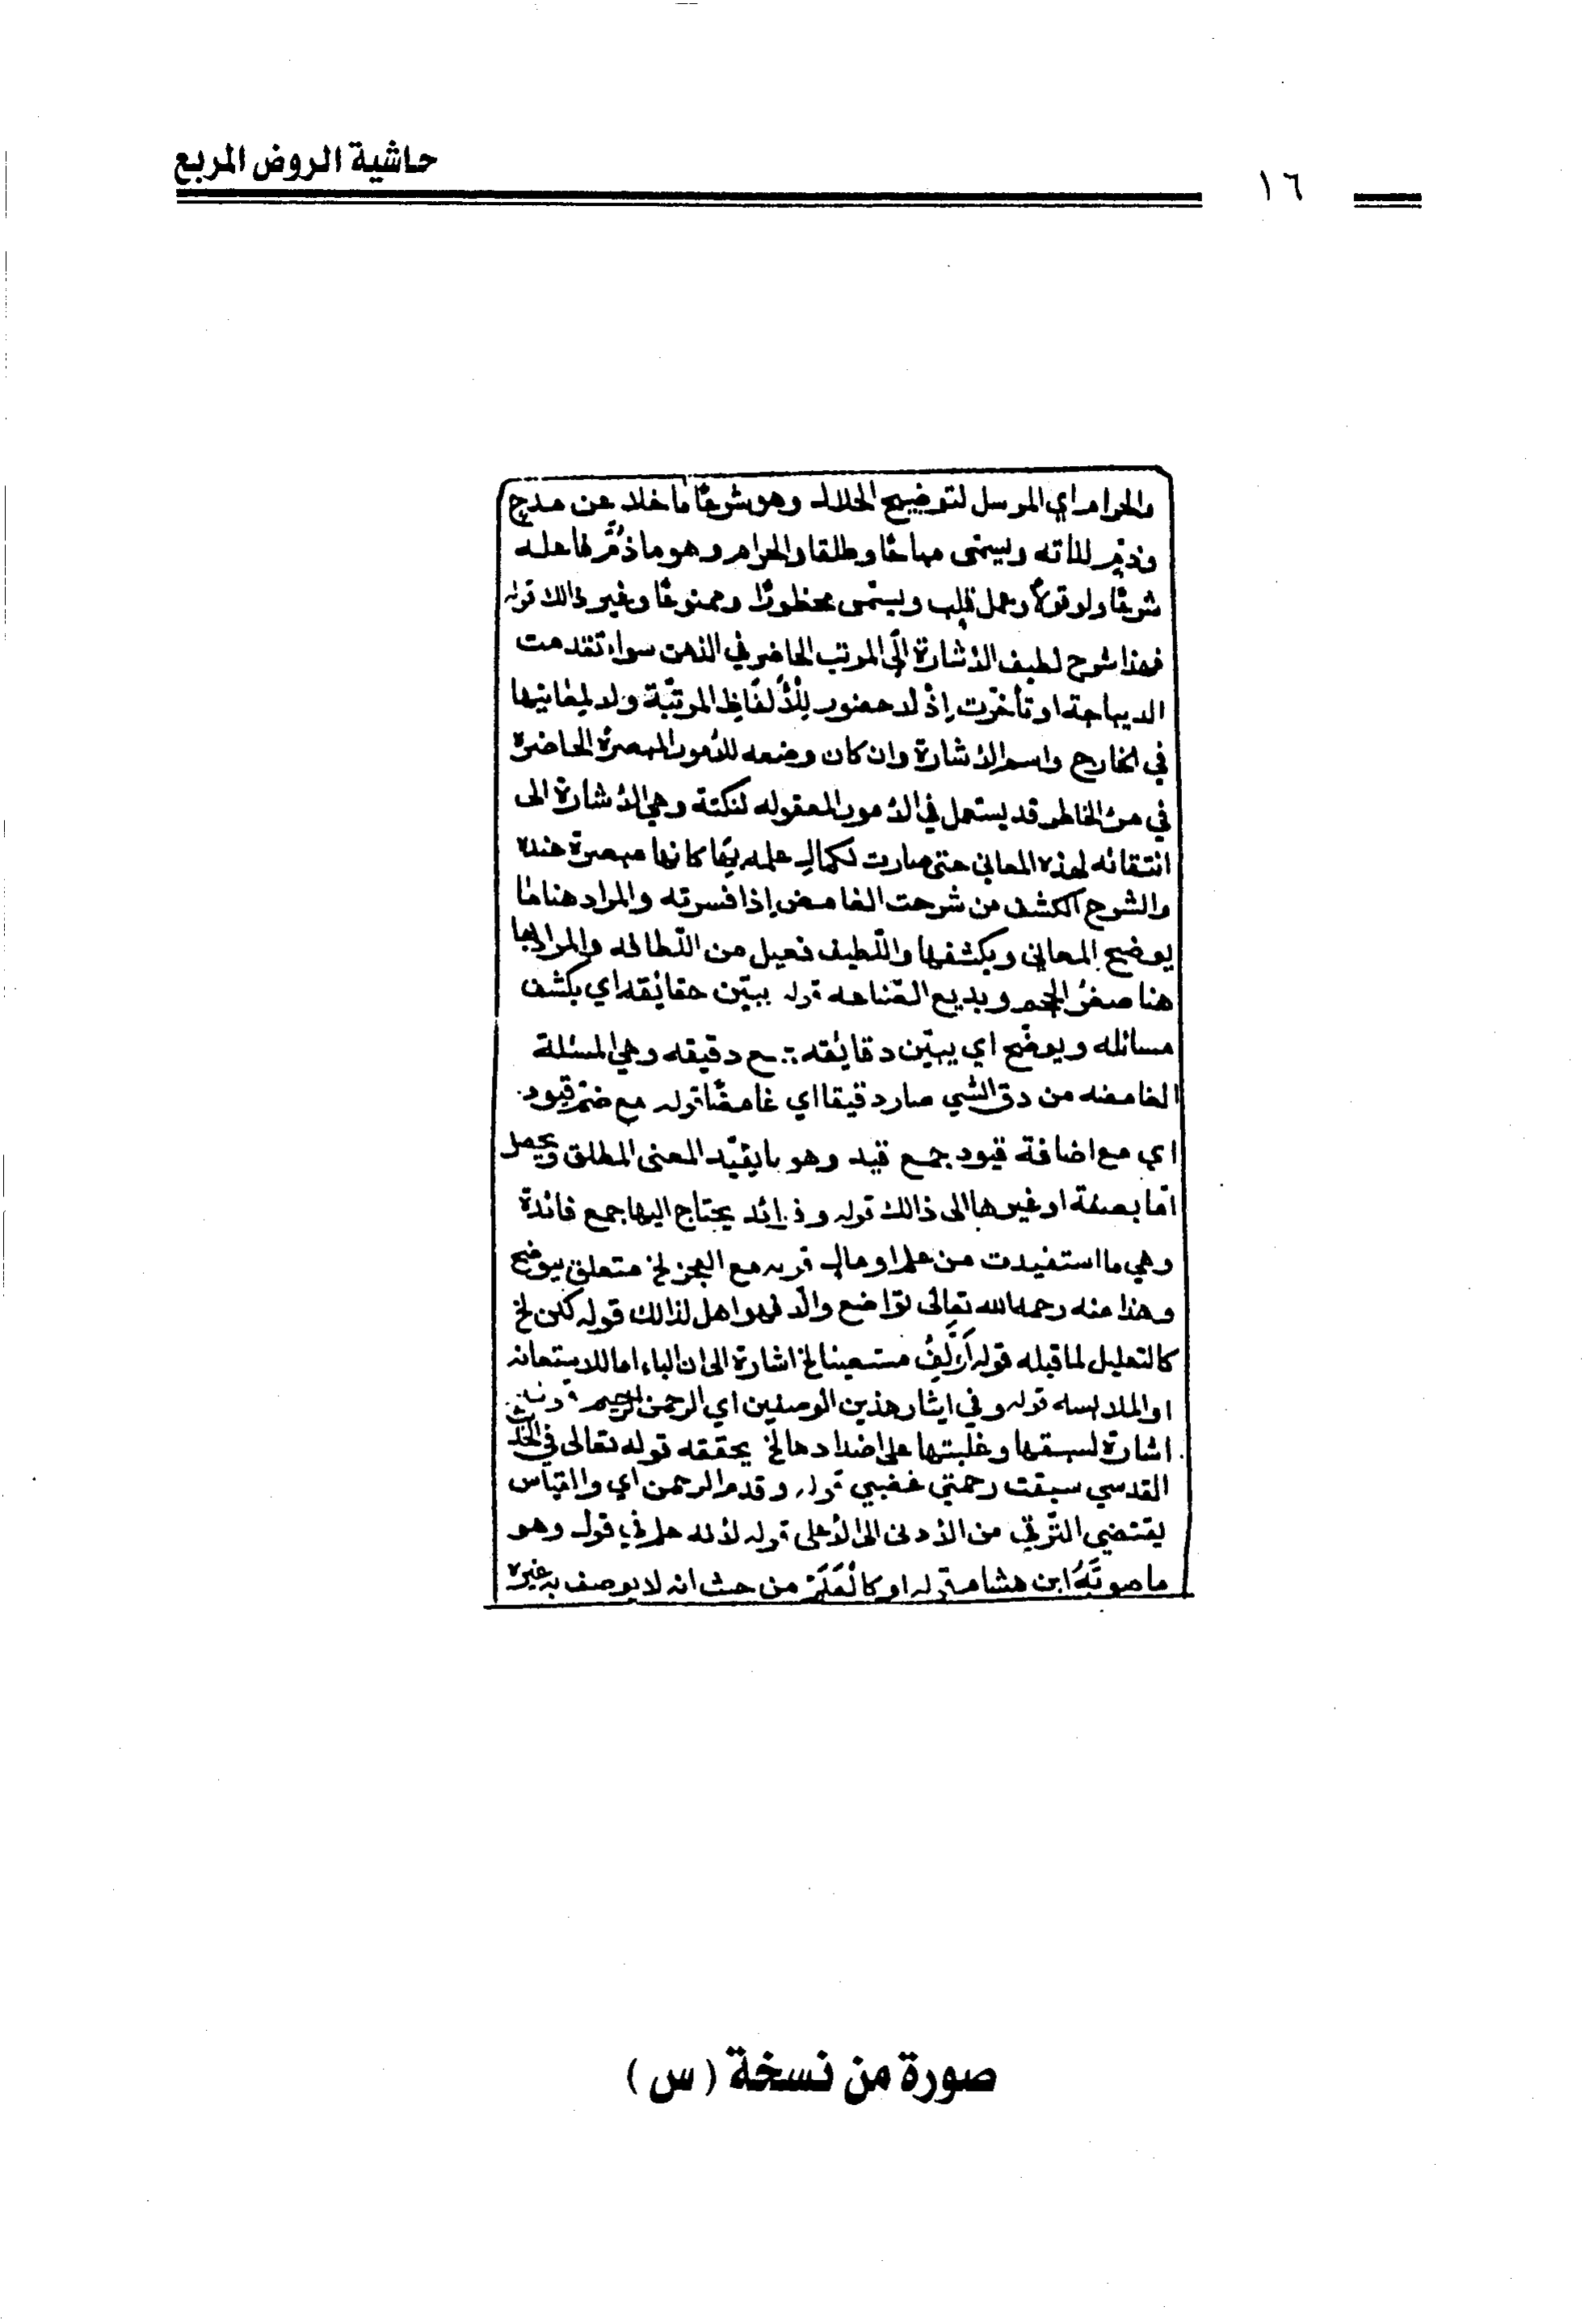 حاشية الروض المربع
١٦
والحرام اي المرسل لتوضيح الحلال وهو شرعًا ما خلا عن مدحٍ
وذمٍّ لذاته ويسمى مباحًا وطلقا والحرام وهو ما ذُمَّ فاعله
شرعًا ولو قولاً وعمل قلب ويسمى محظورًا وممنوعًا وغير ذالك قوله
فهذا شرح لطيف الاشارة إلى المرتب الحاضر في الذهن سواء تقدمت
الديباجة او تأخرت إذ لا حضور للألفاظ المرتبة ولا لمعانيها
في الخارج واسم الاشارة وان كان وضعه للأمور المبصرة الحاضرة
في الخاطر قد يستعمل في الامور المعقوله لنكتة وهي الاشارة الى
اتقانه لهذه المعاني حتى صارت لكمال علمه بها كانها مبصرة عنده
والشرح الكشف من شرحت الغامض إذا فسرته والمراد هنا ما
يوضح المعاني ويكشفها واللطيف فعيل من اللطافه والمراد بها
هنا صغر الحجم وبديع الصناعه قوله يبيّن حقائقه اي يكشف
مسائله ويوضّح اي يبيّن دقايقه جمع دقيقه وهي المسئلة
الغامضه من دق الشي صار دقيقا اي غامضًا قوله مع ضم قيود
اي مع اضافة قيود جمع قيد وهو ما يقيّد المعنى المطلق
امّا بصفة او غيرها الى ذالك قوله وفوائد يحتاج اليها جمع فائدة
وهي ما استفيدت من علم او مال قوله مع العجز لخ متعلق بيوضح
وهذا منه رحمه الله تعالى تواضع والّا فهو اهل لذالك قوله لكن لخ
كالتعليل لما قبله قوله أؤلّفُ مستعينا لخ اشارة الى ان الباء اما للاستعانه
او الملابسه قوله وفي ايثار هذين الوصفين اي الرحمن الرحيم
اشارة لسبقها وغلبتها على اضدادها لخ يحققه قوله تعالى في الحديث
القدسي سبقت رحمتي غضبي قوله وقدم الرحمن اي والقياس
يقتضي الترقي من الأدنى الى الأعلى قوله لأنه علم في قول وهو
ما صوبَهُ ابن هشام قوله او كالعَلَم من حيث انه لا يوصف به غيره
صورة من نسخة (س)